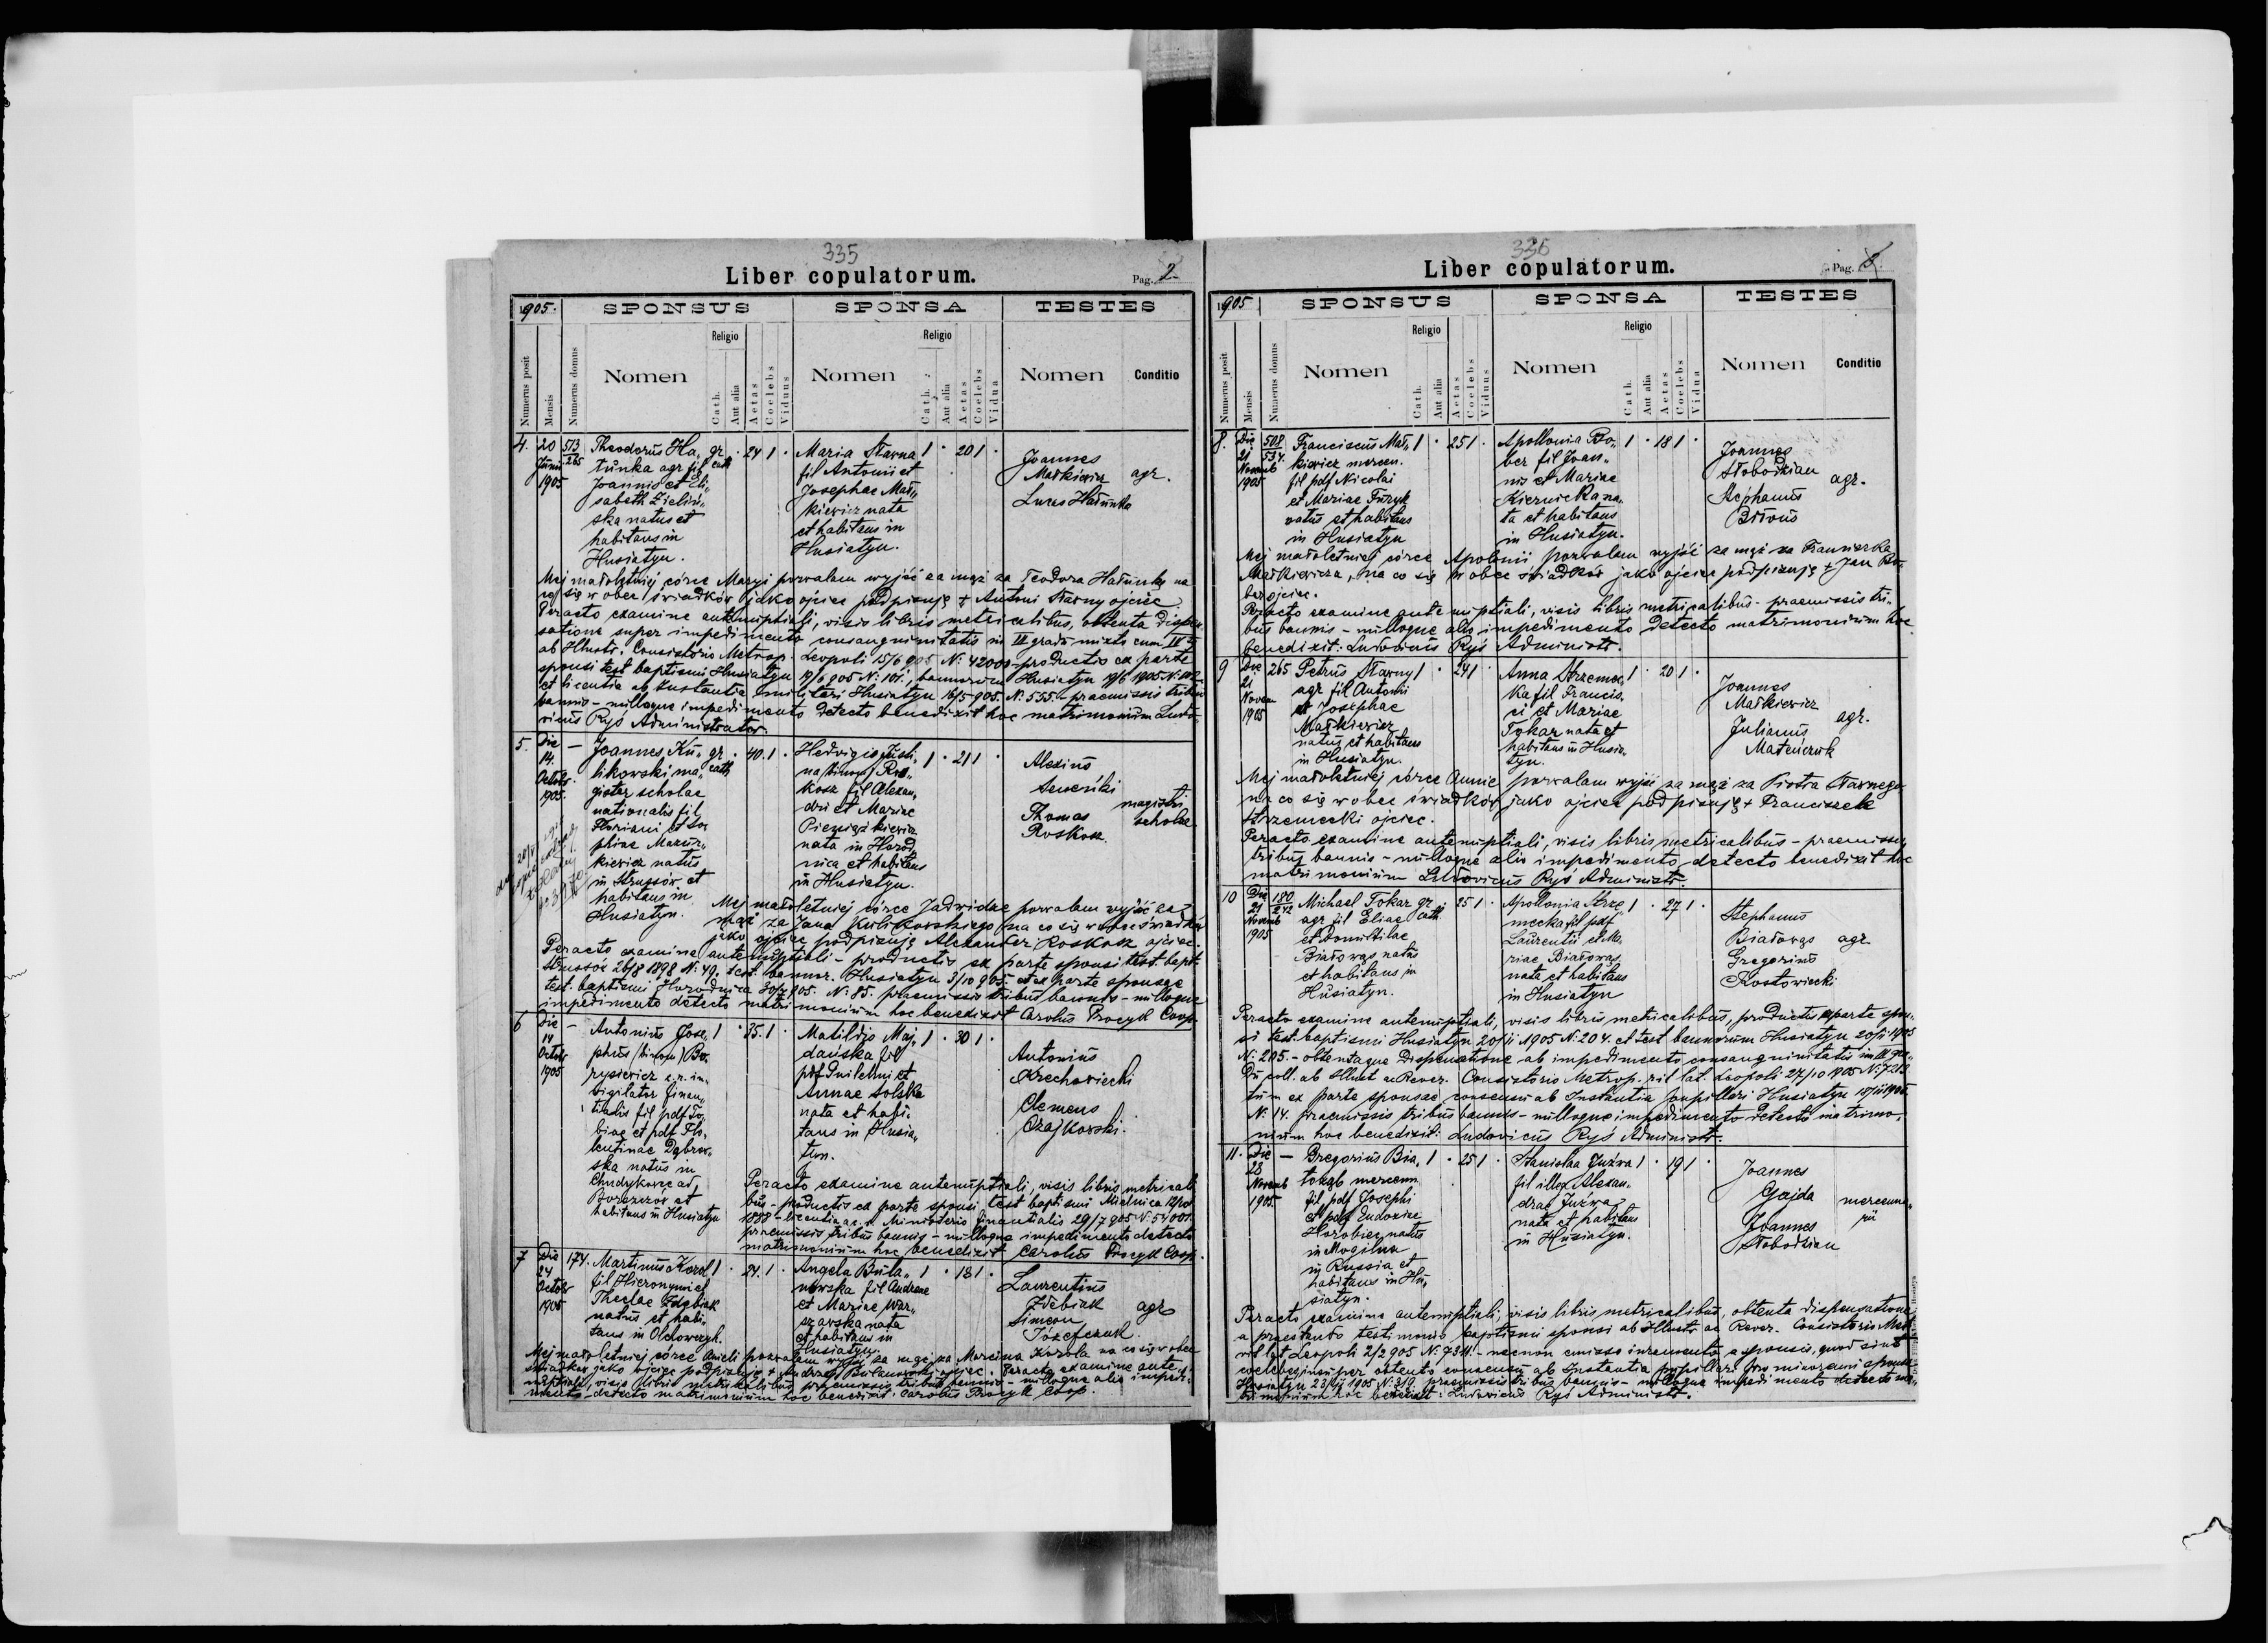 335
Liber copulatorum.
Pag. 2
1905.
SPONSUS
SPONSA
TESTES
Numerus posit
Mensis
Numerus domus
Nomen
Religio
Cath.
Aut alia
Aetas
Coelebs
Viduus
Nomen
Religio
Cath.
Aut alia
Aetas
Coelebs
Vidua
Nomen
Conditio
4.
20
Junii
1905
513
265
Theodorus Ha„
tunka agr fil
Joannis et Eli„
sabeth Zieliń„
ska natus et
habitans in
Husiatyn.
gr
cath
24 1
Maria Sławna
fil Antonii et
Josephae Mał„
kiewicz nata
et habitans in
Husiatyn.
1 · 20 1 ·
Joannes
Małkiewicz
Lucas Hatunka
agr.
Mej małoletniej córce Maryi pozwalam wyjść za mąż za Teodora Hatunkę na
co się w obec świadków jako ojciec podpisuję + Antoni Sławny ojciec
Peracto examine antenuptiali, visis libris metricalibus, obtenta dispen
satione super impedimento consanguinitatis in III gradu mixto cum IV
ab Illustr. Consistorio Metrop. Leopoli 15/6 905 N: 4200 - productis ex parte
sponsi test baptismi Husiatyn 19/6 905 N: 101, bannorum Husiatyn 19/6 1905 N:
et licentia ab Instantia militari Husiatyn 16/5 905. N: 535 - praemissis tribus
bannis - nulloque impedimento detecto benedixit hoc matrimonium Ludo„
vicus Ryś Administrator.
5.
Die
14.
Octobr.
1905.
—
Joannes Ku„
likowski ma„
gister scholae
nationalis fil
Floriani et So
phiae Mazur„
kiewicz natus
in Strussów et
habitans in
Husiatyn.
gr
cath
40. 1 ·
Hedvigis Justi„
na /binom/ Ros„
kosz fil Alexan„
dri et Mariae
Pieniążkiewicz
nata in Horod
nica et habitans
in Husiatyn.
1 · 21 1 ·
Alexius
Thomas
Roskosz
magistri
scholae
Mej małoletniej córce Jadwidze pozwalam wyjść za
mąż za Jana Kulikowskiego na co się w obec świadków
jako ojciec podpisuję Alexander Roskosz ojciec.
Peracto examine antenuptiali - productis ex parte sponsi test. bapt.
Strussów 26/8 1898 N: 49. test. bannor. Husiatyn 3/10 905. et ex parte sponsae
test. baptismi Horodnica 905. N: 85. praemissis tribus bannis - nulloque
impedimento detecto matrimonium hoc benedixit Carolus Procyk Coop.
6
Die
14
Octobr
1905
—
Antonius Jose„
phus /binom/ Bo„
rysiewicz c.r. in„
vigilator finan„
tialis fil pdf To„
biae et pdf Fh„
lentinae Dąbrow„
ska natus in
Chudykowce ad
Borszczów et
habitans in Husiatyn
1 · 35. 1 ·
Matildis Maj„
dańska fil
pdf Guilelmi et
Annae Solska
nata et habi„
tans in Husia„
tyn.
1 · 30 1 ·
Antonius
Orzechowiecki
Clemens
Czajkowski.
Peracto examine antenuptiali, visis libris metricali„
bus - productis ex parte sponsi test baptismi Mielnica
1888 - licentia a c. r. Ministeris finantialis 29/7 905 N: 54001
praemissis tribus bannis - nulloque impedimento detecto
matrimonium hoc benedixit Carolus Procyk Coop.
7
Die
24
Octobr
1905
174.
Martinus Korol
fil Hieronymi et
Theclae Zdebiak
natus et habi„
tans in Olchowczyk.
1 · 24. 1 ·
Angela Bula„
nowska fil Andreae
et Mariae War„
szawska nata
et habitans in
Husiatyn.
1 · 18 1 ·
Laurentius
Zdebiak
Simeon
Józefczuk.
agr
Mej małoletniej córce Anieli pozwalam wyjść za mąż za Marcina Korola na co się w obec
świadków jako ojciec podpisuję + Andrzej Bulanowski ojciec. Peracto examine ante„
nuptiali, visis libris metricalibus praemissis tribus bannis - nulloque alio impedi„
mento detecto matrimonium hoc benedixit. Carolus Procyk Coop.
336
Liber copulatorum.
Pag. 3
1905
SPONSUS
SPONSA
TESTES
Numerus posit
Mensis
Numerus domus
Nomen
Religio
Cath.
Aut alia
Aetas
Coelebs
Viduus
Nomen
Religio
Cath.
Aut alia
Aetas
Coelebs
Vidua
Nomen
Conditio
8.
Die
21
Novemb
1905
508
534.
Franciscus Mał„
kiewicz mercen.
fil pdf Nicolai
et Mariae Furyk
natus et habitans
in Husiatyn
1 · 25 1 ·
Apollonia Bo„
ber fil Joan„
nis et Mariae
Kiernicka na„
ta et habitans
in Husiatyn.
1 · 18 1 ·
Joannes
Słobodzian
Stephanus
agr.
Mej małoletniej córce Apolonii pozwalam wyjść za mąż za Franciszka
Małkiewicza, na co się w obec świadków jako ojciec podpisuję + Jan Bo„
ber ojciec.
Peracto examine antenuptiali, visis libris metricalibus - praemissis tri„
bus bannis - nulloque alio impedimento detecto matrimonium hoc
benedixit: Ludovicus Ryś Administr.
9
Die
21
Novem
1905
265
Petrus Sławny
agr fil Antonii
et Josephae
Małkiewicz
natus et habitans
in Husiatyn.
1 · 24 1
Anna Strzemec„
ka fil Francis„
ci et Mariae
Tokar nata et
habitans in Husia„
tyn.
1 · 20 1 ·
Joannes
Małkiewicz
Julianus
agr.
Mej małoletniej córce Annie pozwalam wyjść za mąż za Piotra Sławnego
na co się w obec świadków jako ojciec podpisuję + Franciszek
Strzemecki ojciec.
Peracto examine antenuptiali, visis libris metricalibus - praemissis
tribus bannis - nulloque alio impedimento detecto benedixit hoc
matrimonium Ludovicus Ryś Administr.
10
Die
21
Novemb
1905
180
242
Michael Tokar
agr fil Eliae
et Domitilae
Białowąs natus
et habitans in
Husiatyn.
gr
cath.
25 1 ·
Apollonia Strze„
mecka fil pdf
Laurentii et Ma„
riae Białowąs
nata et habitans
in Husiatyn
1 · 27 1 ·
Stephanus
Białowąs
Gregorius
Rostowiecki
agr
Peracto examine antenuptiali, visis libris metricalibus, productis ex parte spon„
si test. baptismi Husiatyn 20/11 1905 N: 204. et test bannorum Husiatyn 20/11 1905
N: 205. - obtentaque dispensatione ab impedimento consanguinitatis in III gra„
du coll. ab Illust ac Rever. Consistorio Metrop. rit lat. Leopoli 27/10 1905 N: 7212
tum ex parte sponsae consensu ab Instantia pupillari Husiatyn 18/11 1905
N: 14. praemissis tribus bannis - nulloque impedimento detecto matrimo„
nium hoc benedixit: Ludovicus Ryś Administr.
11.
Die
28
Novemb
1905.
—
Gregorius Bia„
łogłąb mercenn.
fil pdf Josephi
et pdf Eudoxiae
Horobiey natus
in Mogilna
in Russia et
habitans in Hu„
siatyn.
1 · 25 1 ·
Stanislaa Juźwa
fil illeg Alexan„
drae Juźwa
nata et habitans
in Husiatyn.
1 · 19 1 ·
Joannes
Gajda
Joannes
Słobodzian
mercenna„
rii
Peracto examine antenuptiali, visis libris metricalibus, obtenta dispensatione
a praestando testimonio baptismi sponsi ab Illustr ac Rever. Consistorio Metr
rit lat Leopoli 2/2 905 N: 7311. - necnon emisso iuramento a sponsis, quod sint
coelebes, insuper obtento consensu ab Instantia pupillari pro minorenni sponsa
Husiatyn 23/11 1905 N: praemissis tribus bannis - nulloque impedimento detecto ma„
trimonium hoc benedixit: Ludovicus Ryś Administr.